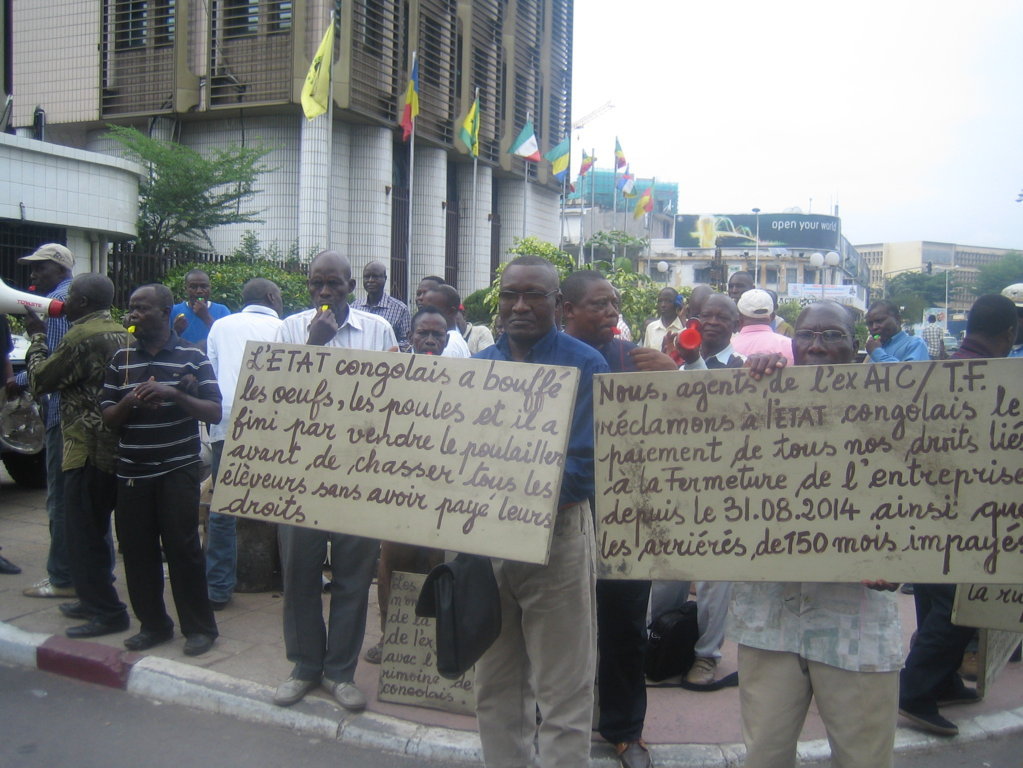 open your world
L'ETAT congolais a bouffé
les oeufs, les poules et il a
fini par vendre le poulailler
avant de chasser tous les
élèveurs sans avoir payé leurs
droits.
Nous, agents, de l'ex AIC/T.F.
réclamons à l'ETAT congolais le
paiement de tous nos droits liés
à la Fermeture de l'entreprise
depuis le 31.08.2014 ainsi que
les arriérés de 150 mois impayés
Les
de la
de l'ex
avec l
rimoine de
congolais
la ru